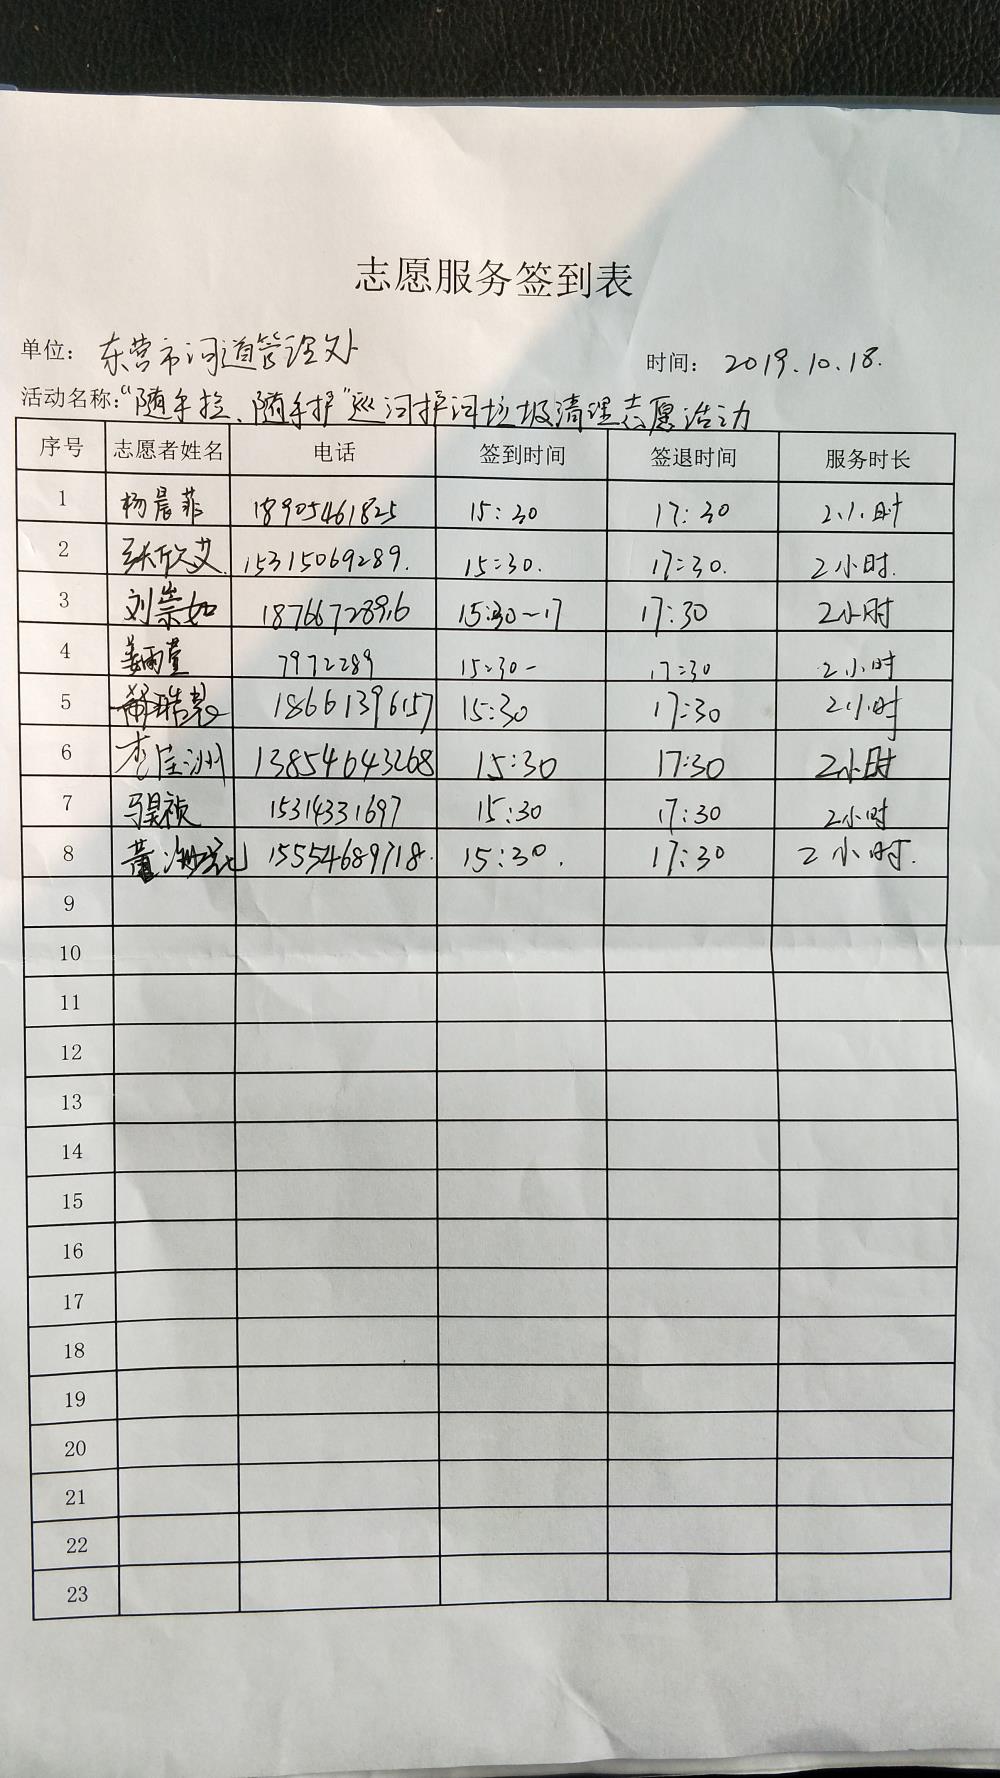 志愿服务签到表
单位: 东营市河道管理处 时间: 2019.10.18.
活动名称:“随手捡、随手护”巡河护河垃圾清理志愿活动
序号 志愿者姓名 电话 签到时间 签退时间 服务时长
1 杨晨菲 18905461825 15:30 17:30 2小时
2 张欣艾 15315069289. 15:30. 17:30. 2小时.
3 刘崇如 18766728916 15:30~17 17:30 2小时
4 姜雨萱 7972289 15:30- 17:30 2小时
5 18661396157 15:30 17:30 2小时
6 李佳洲 13854643268 15:30 17:30 2小时
7 马昊祯 15314331697 15:30 17:30 2小时
8 董 15554689718. 15:30. 17:30 2小时.
9
10
11
12
13
14
15
16
17
18
19
20
21
22
23